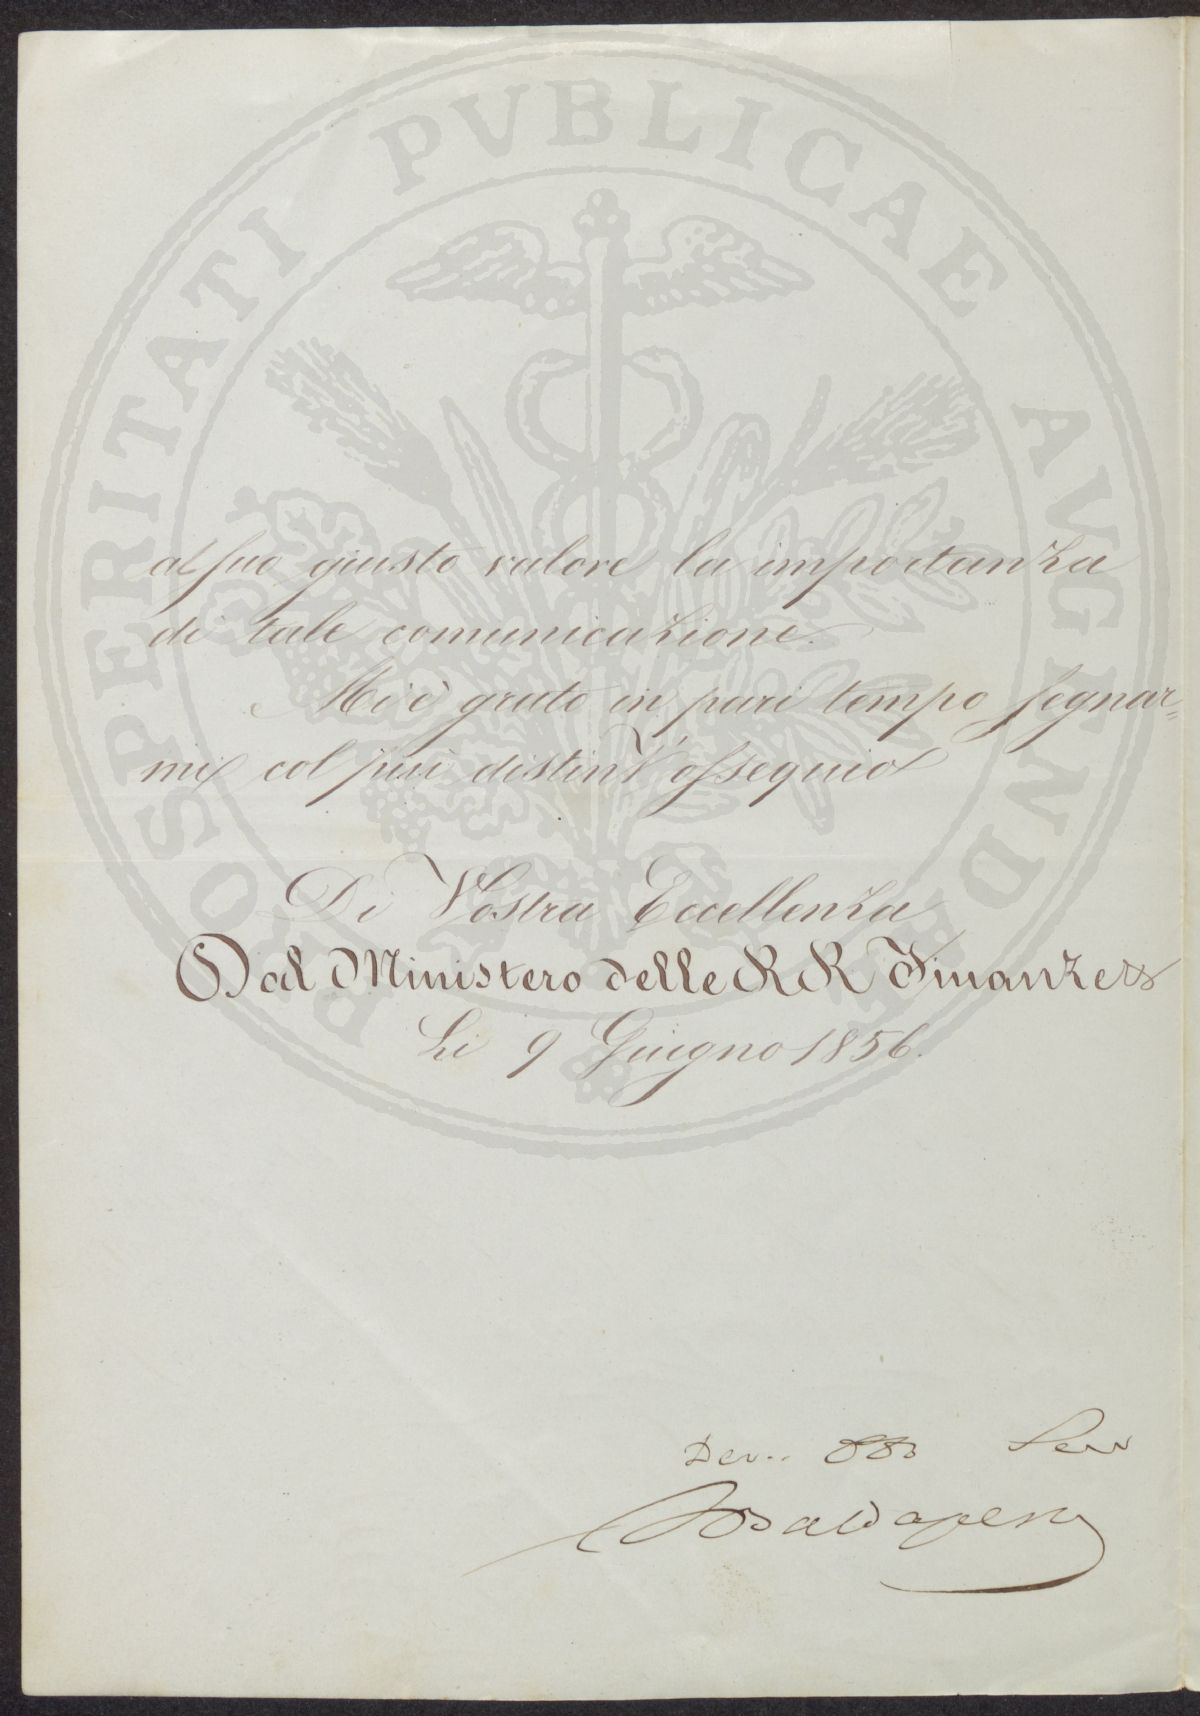 PROSPERITATI PUBLICAE AVGENDAE
al suo giusto valore la importanza
di tale comunicazione.
Mi è grato in pari tempo segnar=
mi col più distint' ossequio
Di Vostra Eccellenza
Dal Ministero delle RR Finanze
Li 9 Giugno 1856.
Dev.. Obb Serv